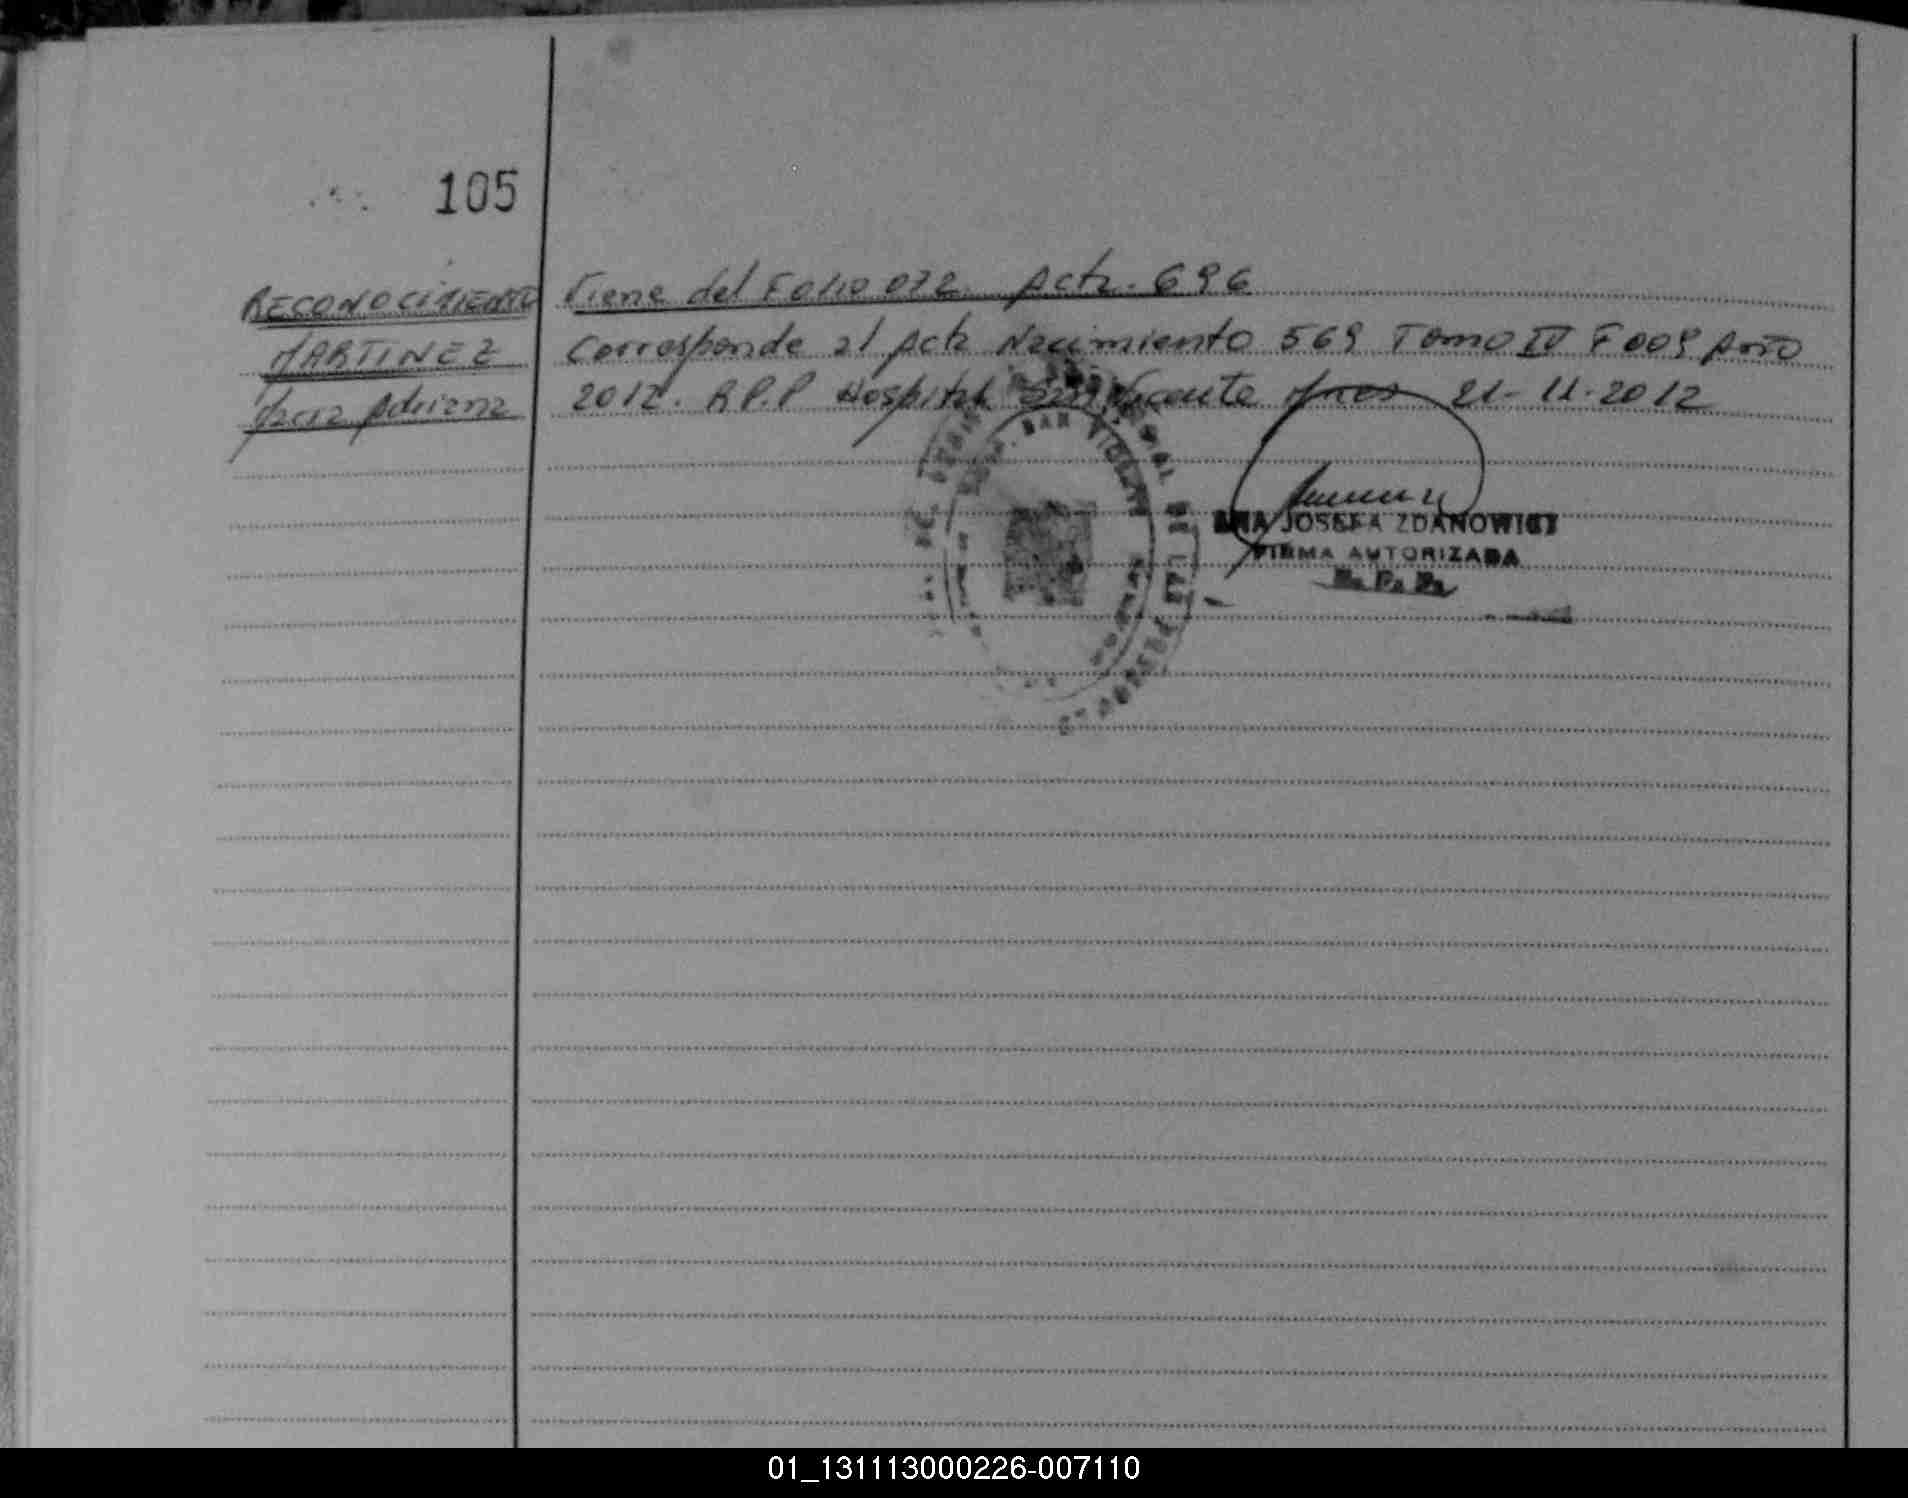 105
RECONOCIMIENTO
MARTINEZ
Adriana
Viene del Folio 072. Acta. 696
Corresponde al Acta Nacimiento 569 Tomo IV F 009 Año
2012. R.P.P Hospital San Vicente 21-11-2012
SAN VICENTE
ANA JOSEFA ZDANOWICZ
FIRMA AUTORIZADA
R. P. P.
01_131113000226-007110